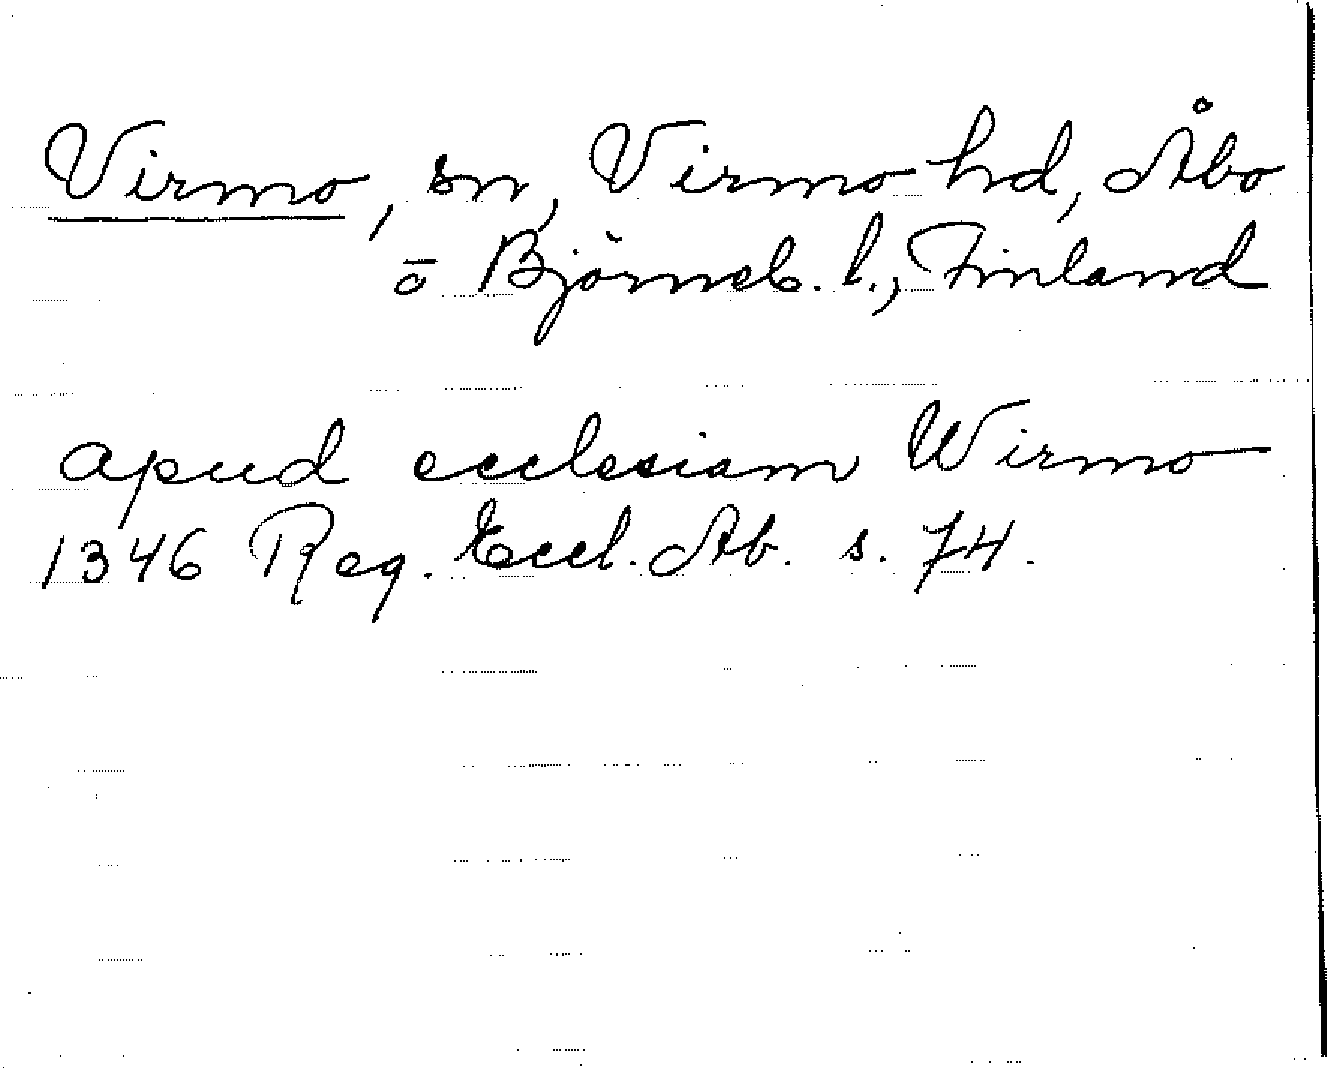 Virmo, sn, Virmo hd, Åbo
o Björneb. l., Finland
apud ecclesiam Wirmo
1346 Reg. Eccl. Ab. s. 74.